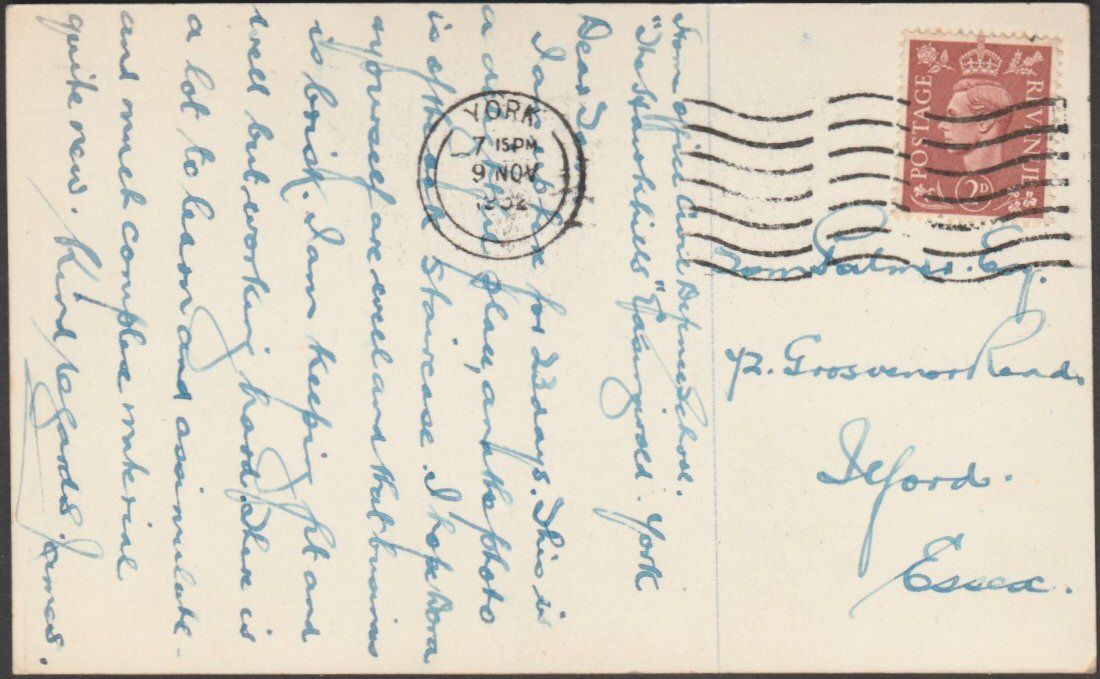 From Office Civil Defence School.
"The Hawkhills" Easingwold. York
Dear Tom
I am here for 23 days. This is
a place, and the photo
is of the oak staircase. I hope Dora
& yourself are well and that business
is brisk. I am keeping fit and
well but working hard. There is
a lot to learn and assimulate -
and much complex material
quite new. Kind regards. James.
YORK
7 15 PM
9 NOV
1952
POSTAGE
REVENUE
2D
Tom Palmer. Esq.
72. Grosvenor Road.
Ilford.
Essex.